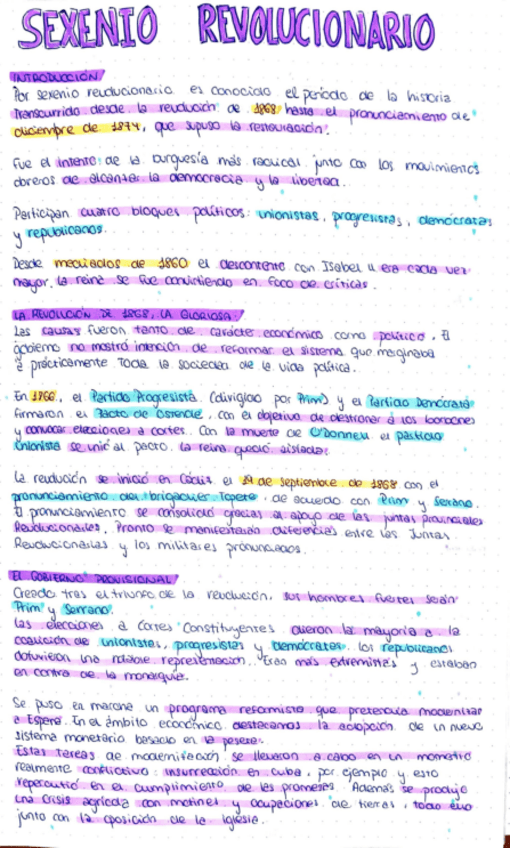 SEXENIO REVOLUCIONARIO
INTRODUCCIÓN
Por sexenio revolucionario es conocido el período de la historia
transcurrido desde la revolución de 1868 hasta el pronunciamiento de
diciembre de 1874, que supuso la restauración.
Fue el intento de la burguesía más radical junto con los movimientos
obreros de alcanzar la democracia y la libertad.
Participan cuatro bloques políticos: unionistas, progresistas, demócratas
y republicanos.
Desde mediados de 1860 el descontento con Isabel II era cada vez
mayor. La reina se fue convirtiendo en foco de críticas.
LA REVOLUCIÓN DE 1868, LA GLORIOSA.
Las causas fueron tanto de carácter económico como político. El
gobierno no mostró intención de reformar el sistema que marginaba
a prácticamente toda la sociedad de la vida política.
En 1866, el Partido Progresista (dirigido por Prim) y el Partido Demócrata
firmaron el Pacto de Ostende, con el objetivo de destronar a los borbones
y convocar elecciones a cortes. Con la muerte de O'Donnell el partido
Unionista se unió al pacto. La reina quedó aislada.
La revolución se inició en Cádiz el 19 de septiembre de 1868 con el
pronunciamiento del brigadier Topete, de acuerdo con Prim y Serrano.
El pronunciamiento se consolidó gracias al apoyo de las juntas provinciales
Revolucionarias. Pronto se manifestarán diferencias entre las Juntas
Revolucionarias y los militares pronunciados.
EL GOBIERNO PROVISIONAL
Creado tras el triunfo de la revolución, sus hombres fuertes serán
Prim y Serrano.
Las elecciones a Cortes Constituyentes dieron la mayoría a la
coalición de unionistas, progresistas y demócratas. Los republicanos
obtuvieron una notable representación. Eran más extremistas y estaban
en contra de la monarquía.
Se puso en marcha un programa reformista que pretendía modernizar
a España. En el ámbito económico destacamos la adopción de un nuevo
sistema monetario basado en la peseta.
Estas tareas de modernización se llevaron a cabo en un momento
realmente conflictivo: insurrección en Cuba, por ejemplo y esto
repercutió en el cumplimiento de las promesas. Además se produjo
una crisis agrícola con motines y ocupaciones de tierras, todo ello
junto con la oposición de la Iglesia.